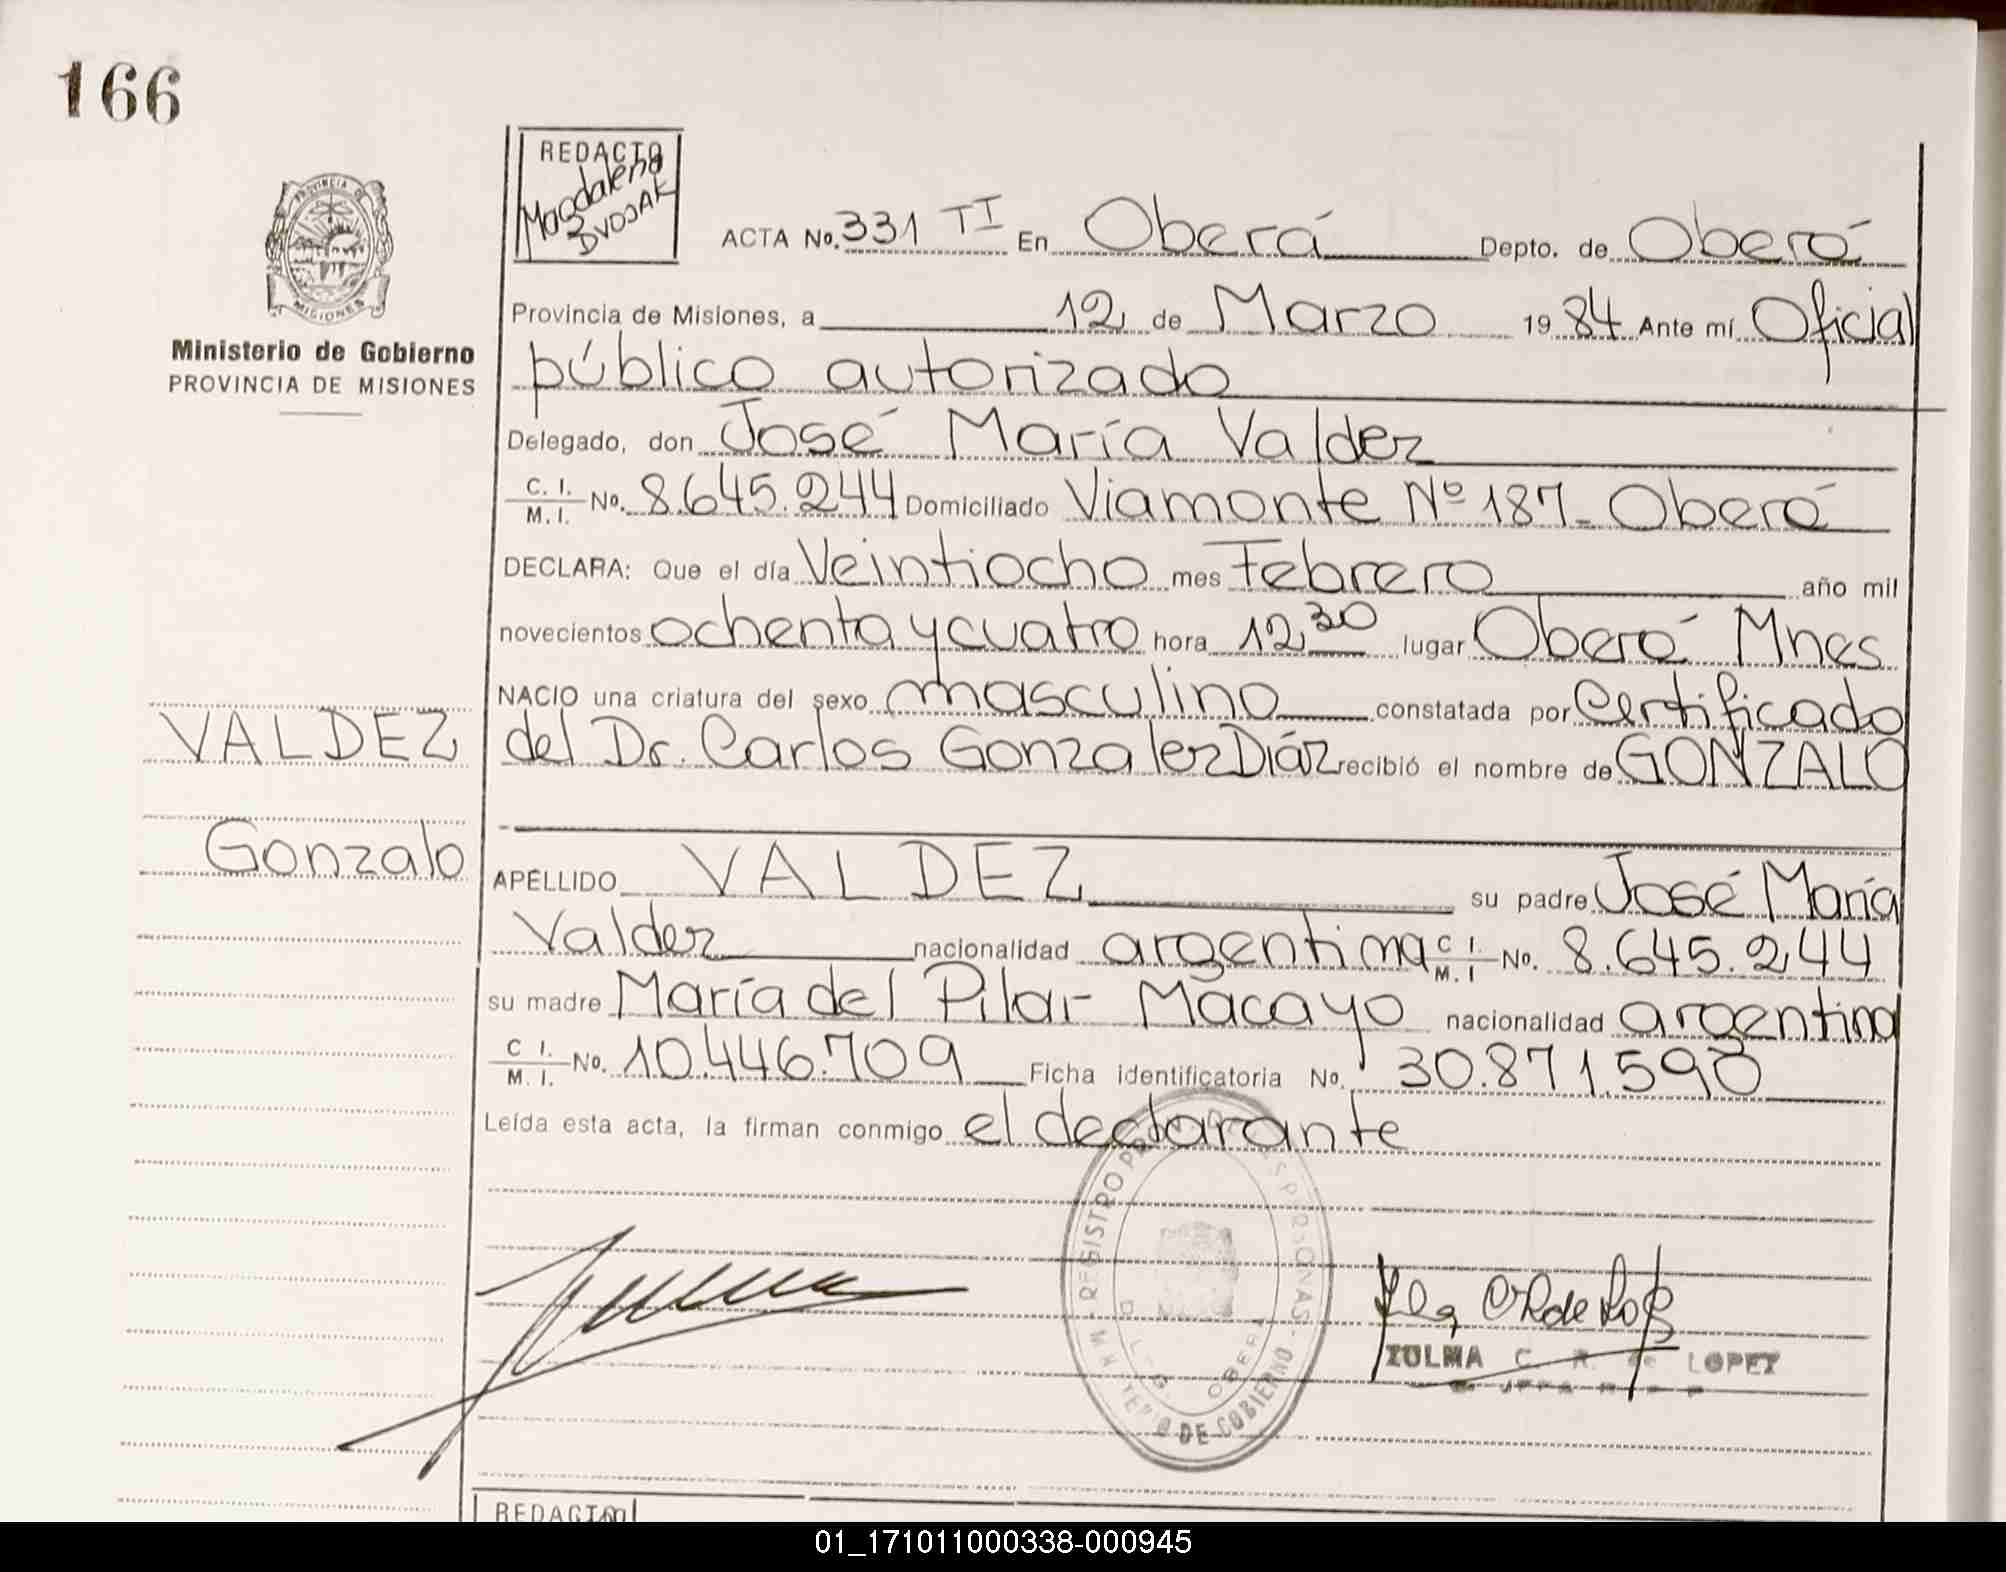 166
REDACTO
Magdalena
DVOJAK
PROVINCIA DE
MISIONES
Ministerio de Gobierno
PROVINCIA DE MISIONES
ACTA No. 331 TI En Oberá Depto. de Oberá
Provincia de Misiones, a 12 de Marzo 19 84 Ante mí Oficial
público autorizado
Delegado, don José María Valdez
C. I. / M. I. No. 8.645.244 Domiciliado Viamonte Nº 187 - Oberá
DECLARA: Que el día Veintiocho mes Febrero año mil
novecientos ochenta y cuatro hora 12,30 lugar Oberá Mnes
NACIO una criatura del sexo masculino constatada por Certificado
del Dr. Carlos Gonzalez Diáz recibió el nombre de GONZALO
VALDEZ
Gonzalo
APELLIDO VALDEZ su padre José María
Valdez nacionalidad argentina C I. / M. I No. 8.645.244
su madre María del Pilar Macayo nacionalidad argentina
C I. / M. I. No. 10.446.709 Ficha identificatoria No. 30.871.598
Leída esta acta, la firman conmigo el declarante
REGISTRO PERSONAS
OBERA
DE GOBIERNO
ZULMA C. R. de LOPEZ
REDACTO
01_171011000338-000945